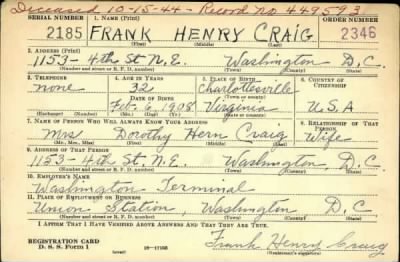 Deceased 10-15-44 - Record No 449593
SERIAL NUMBER 1. NAME (Print) ORDER NUMBER
2185 FRANK HENRY CRAIG 2346
(First) (Middle) (Last)
2. ADDRESS (Print)
1153- 4th St N.E. Washington D.C.
(Number and street or R. F. D. number) (Town) (County) (State)
3. TELEPHONE 4. AGE IN YEARS 5. PLACE OF BIRTH 6. COUNTRY OF CITIZENSHIP
none 32 Charlottesville
DATE OF BIRTH
Feb. 6, 1908 Virginia U.S.A
(Exchange) (Number) (Mo.) (Day) (Yr.) (State or country)
7. NAME OF PERSON WHO WILL ALWAYS KNOW YOUR ADDRESS 8. RELATIONSHIP OF THAT PERSON
Mrs Dorothy Hern Craig Wife
(Mr., Mrs., Miss) (First) (Middle) (Last)
9. ADDRESS OF THAT PERSON
1153- 4th St. N.E. Washington, D.C
(Number and street or R. F. D. number) (Town) (County) (State)
10. EMPLOYER'S NAME
Washington Terminal
11. PLACE OF EMPLOYMENT OR BUSINESS
Union Station, Washington D.C.
(Number and street or R. F. D. number) (Town) (County) (State)
I AFFIRM THAT I HAVE VERIFIED ABOVE ANSWERS AND THAT THEY ARE TRUE.
REGISTRATION CARD
D. S. S. Form 1 (over) 16-17105 Frank Henry Craig
(Registrant's signature)